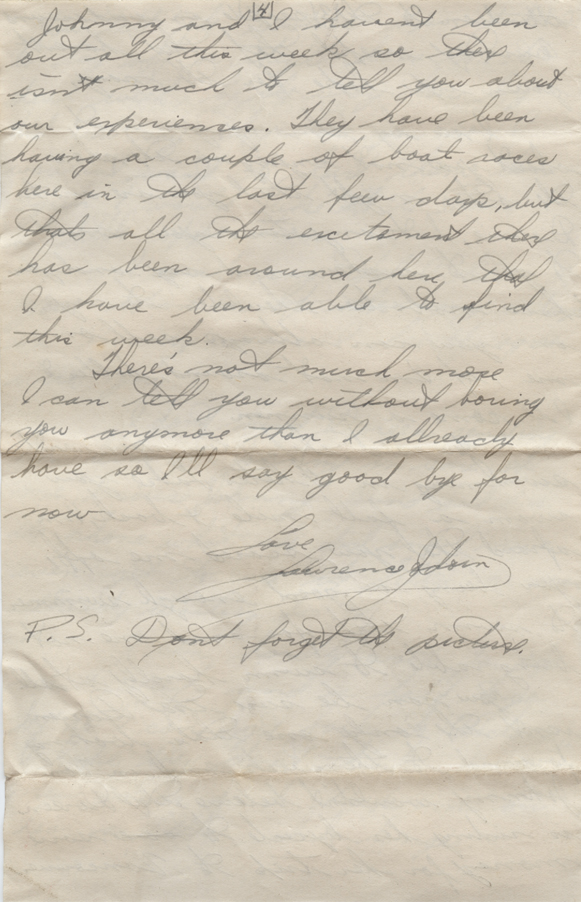 4
Johnny and I havent been
out all this week so ther
isn't much to tell you about
our experienses. They have been
having a couple of boat races
here in the last few days, but
thats all the excitement ther
has been around here that
I have been able to find
this week.
There's not much more
I can tell you without boring
you anymore than I allready
have so I'll say good bye for
now
Love
Lawrence
P.S. Dont forget the picture.